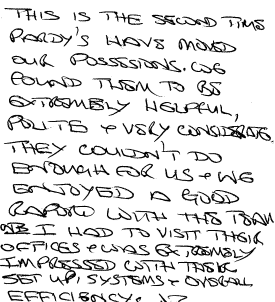 THIS IS THE SECOND TIME
PARDY'S HAVE MOVED
OUR POSSESSIONS. WE
FOUND THEM TO BE
EXTREMELY HELPFUL,
POLITE + VERY CONSIDERATE.
THEY COULDN'T DO
ENOUGH FOR US + WE
ENJOYED A GOOD
RAPORD WITH THE TEAM
I HAD TO VISIT THEIR
OFFICES + WAS EXTREMELY
IMPRESSED WITH THEIR
SET UP, SYSTEMS + OVERALL
EFFICIENCY.